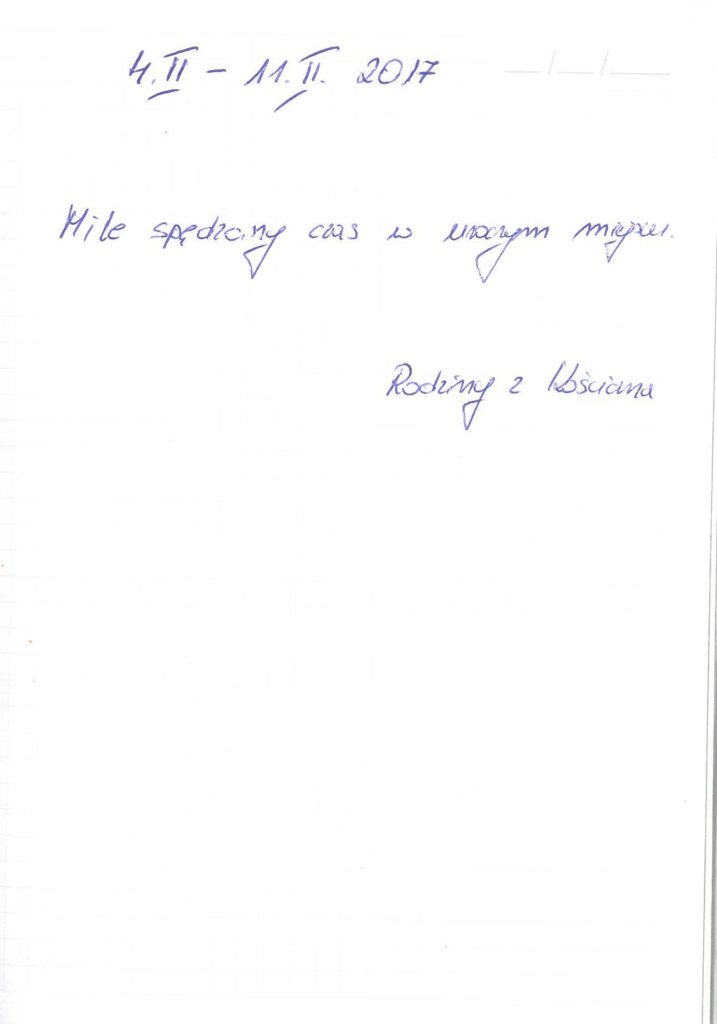 4.II – 11.II. 2017
Mile spędzony czas w uroczym miejscu.
Rodziny z Kościana